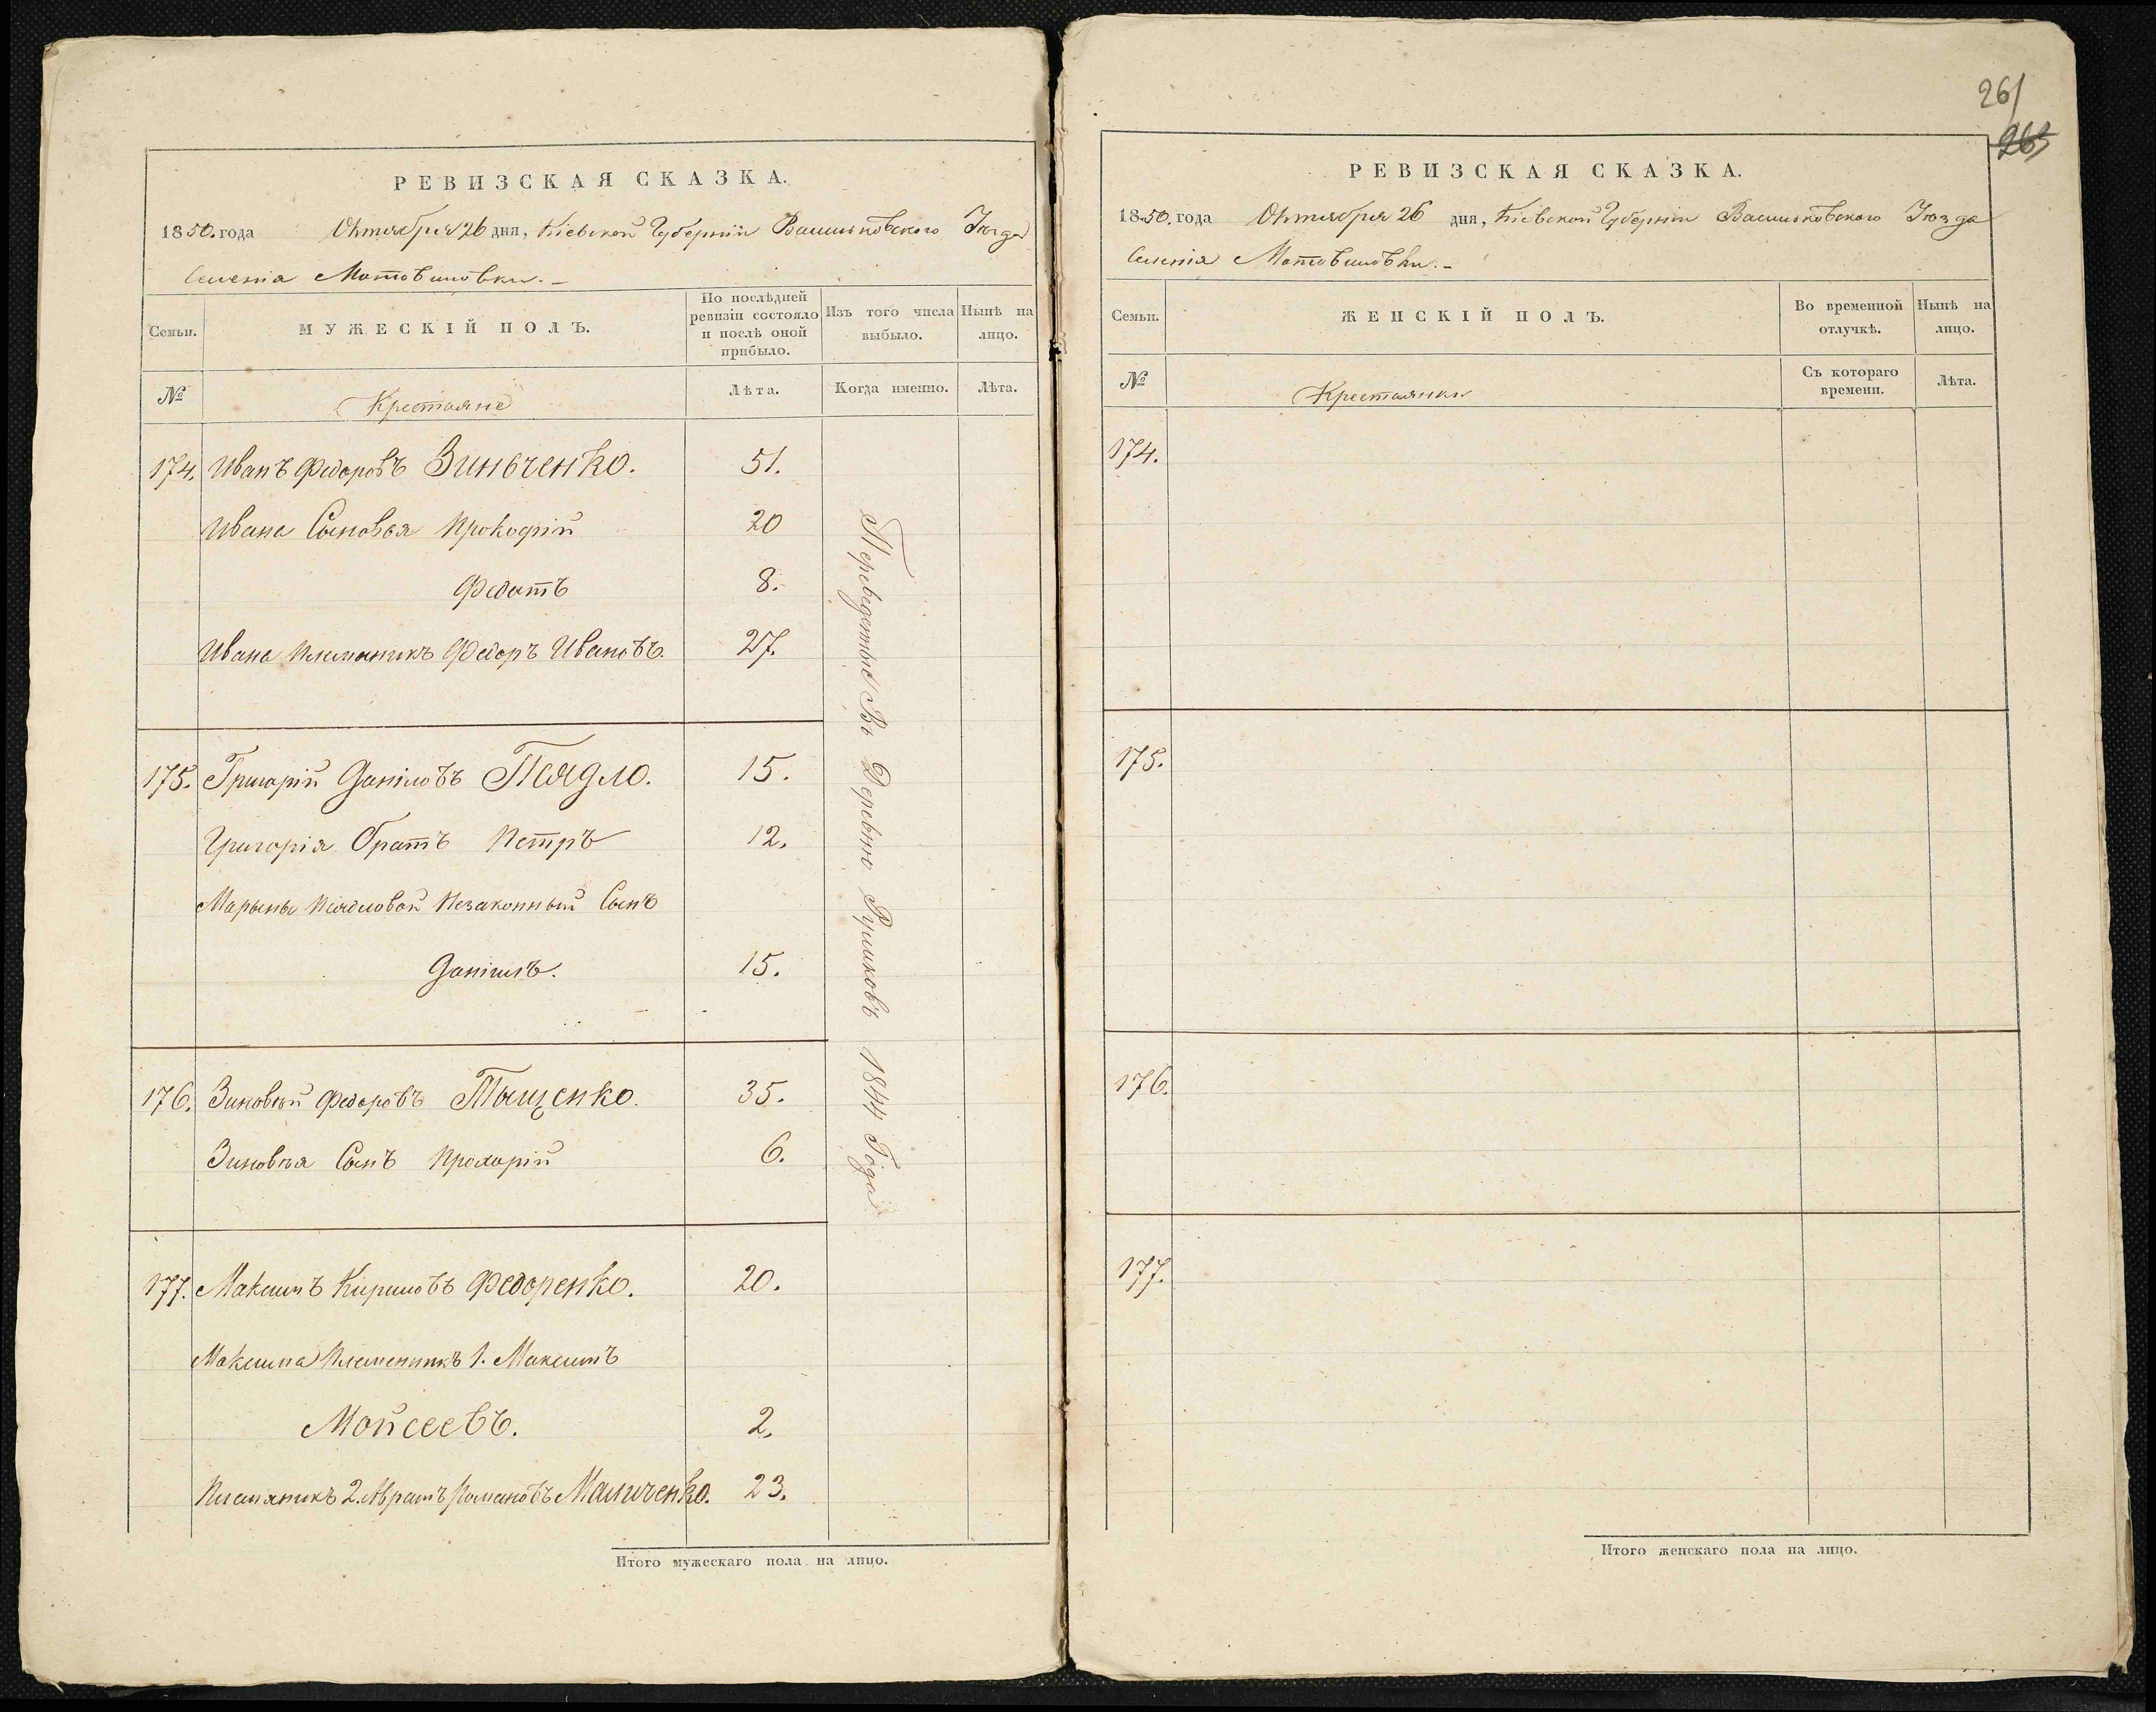 РЕВИЗСКАЯ СКАЗКА.
1850. года Октября 26 дня, Кіевской Губерніи Васильковскаго Уѣзда
Селенія Мотовиловки.-
Семьи.
МУЖЕСКІЙ ПОЛЪ.
По послѣдней ревизіи состояло и послѣ оной прибыло.
Изъ того числа выбыло.
Нынѣ на лицо.
№
Крестьяне
Лѣта.
Когда именно.
Лѣта.
174. Иванъ Федоровъ Зиньченко. 51.
Ивана Сыновья Прокофій 20
Федотъ 8.
Ивана Племяникъ Федоръ Ивановъ. 27.
175. Григорій Даніловъ Псядло. 15.
Григорія Братъ Петръ 12.
Марыны Псядловой Незаконный Сынъ
Даніилъ. 15.
176. Зиновій Федоровъ Тыщенко. 35.
Зиновія Сынъ Прохорій 6.
177. Максимъ Кириловъ Федоренко. 20.
Максима Племеникъ 1. Максимъ
Мойсеевъ. 2.
Племяникъ 2. Аврамъ Романовъ 23.
Переведены въ Деревню 1844 Года
Итого мужескаго пола на лицо.
261
263
РЕВИЗСКАЯ СКАЗКА.
1850. года Октября 26 дня, Кіевской Губерніи Васильковскаго Уѣзда
Селенія Мотовиловки.-
Семьи.
ЖЕНСКІЙ ПОЛЪ.
Во временной отлучкѣ.
Нынѣ на лицо.
№
Крестьянки
Съ котораго времени.
Лѣта.
174.
175.
176.
177.
Итого женскаго пола на лицо.